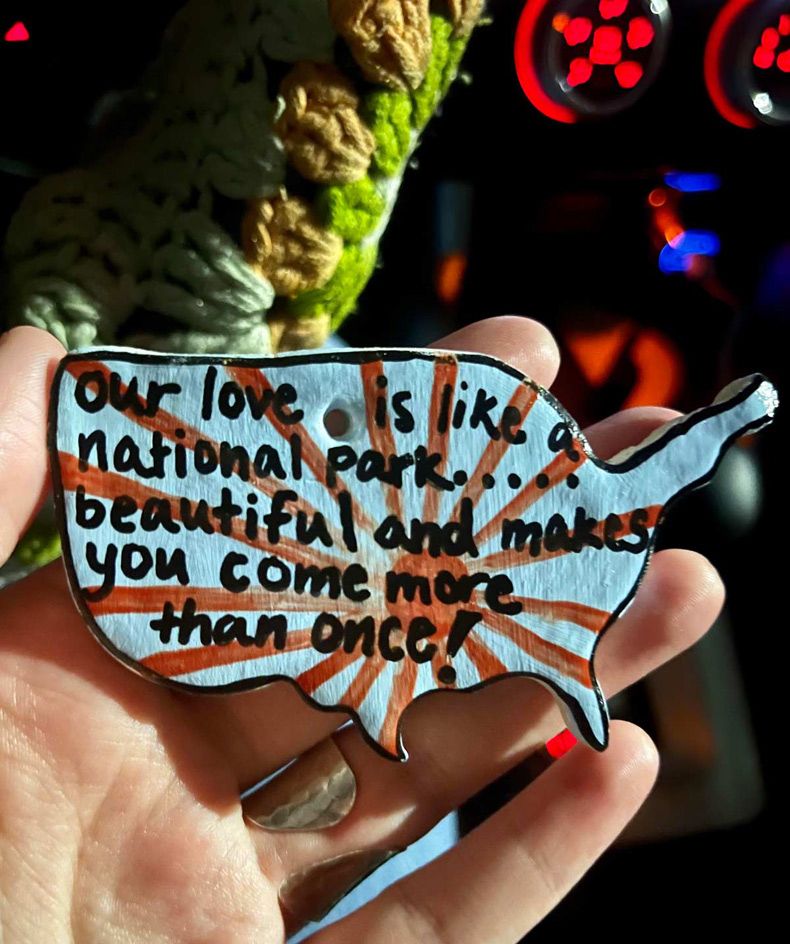 our love is like a
national park.....
beautiful and makes
you come more
than once!